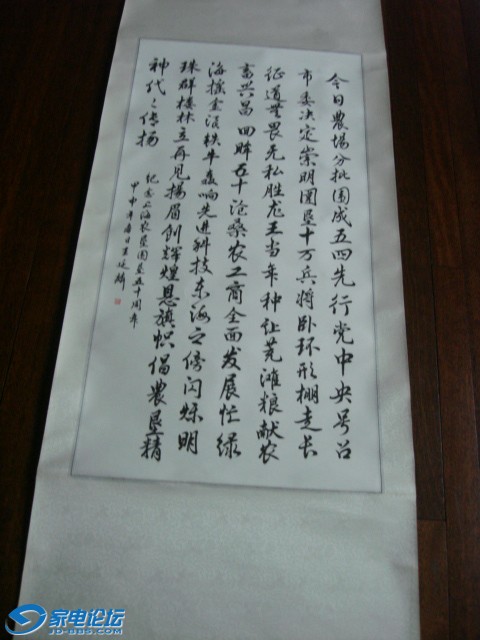 今日農場分批围成五四先行党中央号召
市委决定崇明围垦十万兵将卧环形棚走长
征道無畏无私胜龙王当年种让荒滩粮献农
畜兴昌回眸五十沧桑农工商全面发展忙绿
海摇金浪铁牛轰响先进科技东海之傍闪烁明
珠群楼林立再见揚眉創辉煌垦旗帜倡農垦精
神代々传扬
纪念上海农垦围垦五十周年
甲申年春日王
家电论坛
JD-BBS.COM